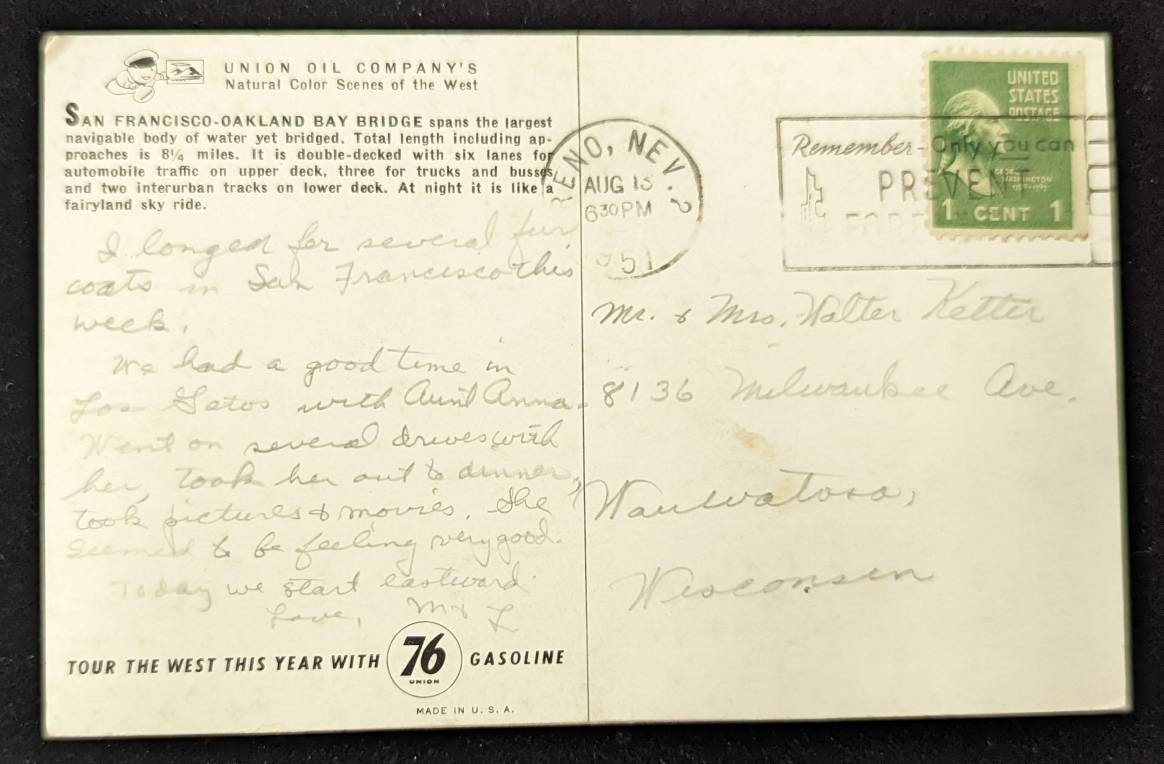 UNION OIL COMPANY'S
Natural Color Scenes of the West
SAN FRANCISCO-OAKLAND BAY BRIDGE spans the largest
navigable body of water yet bridged. Total length including ap-
proaches is 8¼ miles. It is double-decked with six lanes for
automobile traffic on upper deck, three for trucks and busses
and two interurban tracks on lower deck. At night it is like a
fairyland sky ride.
I longed for several fur
coats in San Francisco this
week.
We had a good time in
Los Gatos with Aunt Anna.
Went on several drives with
her, took her out to dinner,
took pictures & movies. She
seemed to be feeling very good.
Today we start eastward.
Love, M & L
TOUR THE WEST THIS YEAR WITH 76 UNION GASOLINE
MADE IN U. S. A.
RENO, NEV. 2
AUG 13
630 PM
51
Remember - Only you can
PREVENT
UNITED
STATES
POSTAGE
GEORGE
WASHINGTON
1 CENT 1
Mr. & Mrs. Walter Ketter
8136 Milwaukee Ave.
Wauwatosa,
Wisconsin